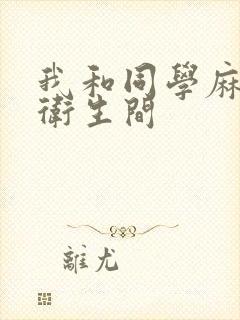 我和同學麻
衛生間
離尤